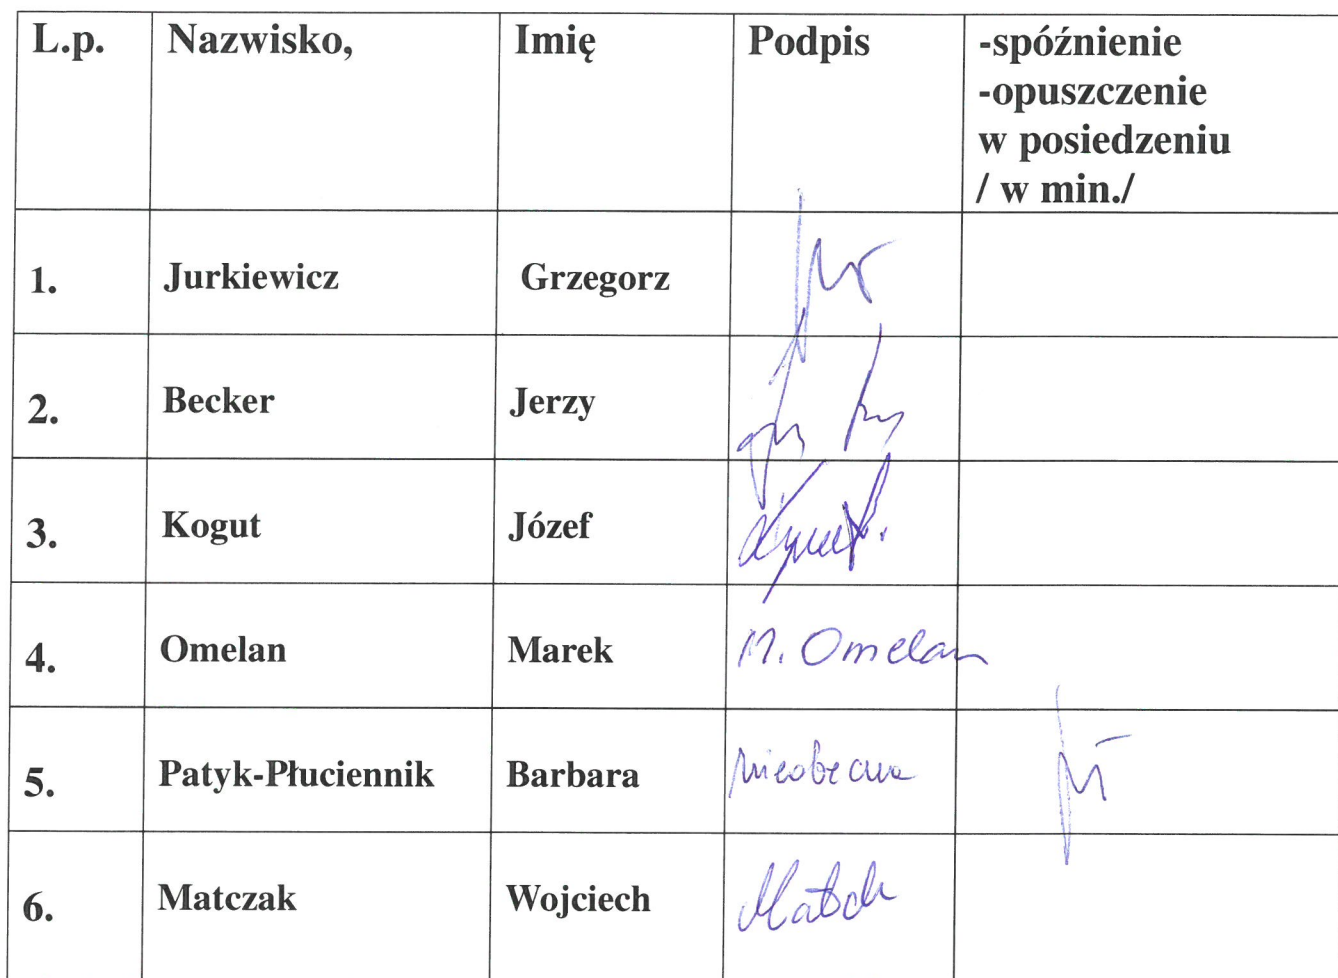 L.p. Nazwisko, Imię Podpis -spóźnienie
-opuszczenie
w posiedzeniu
/ w min./
1. Jurkiewicz Grzegorz
2. Becker Jerzy
3. Kogut Józef
4. Omelan Marek M. Omelan
5. Patyk-Płuciennik Barbara nieobecna
6. Matczak Wojciech